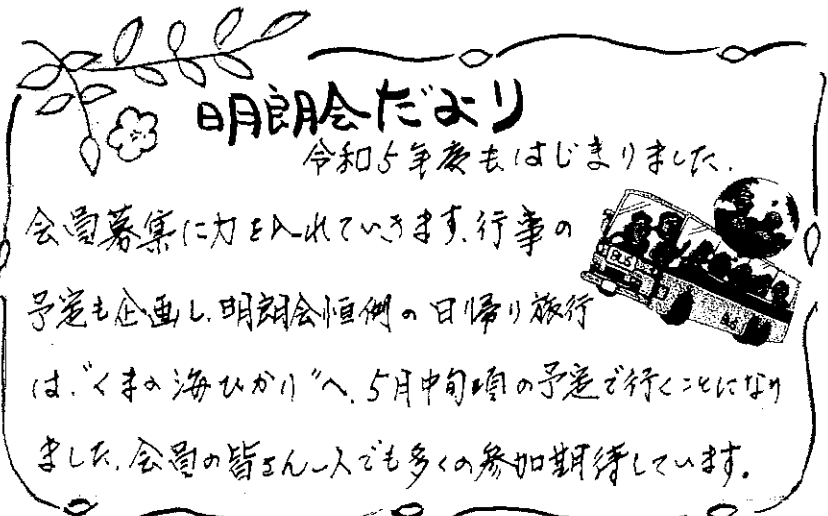 明朗会だより
令和5年度もはじまりました.
会員募集に力を入れていきます.行事の
BUS
予定も企画し.明朗会恒例の日帰り旅行
は."くまの海ひかり"へ.5月中旬頃の予定で行くことになり
ました.会員の皆さん一人でも多くの参加期待しています.